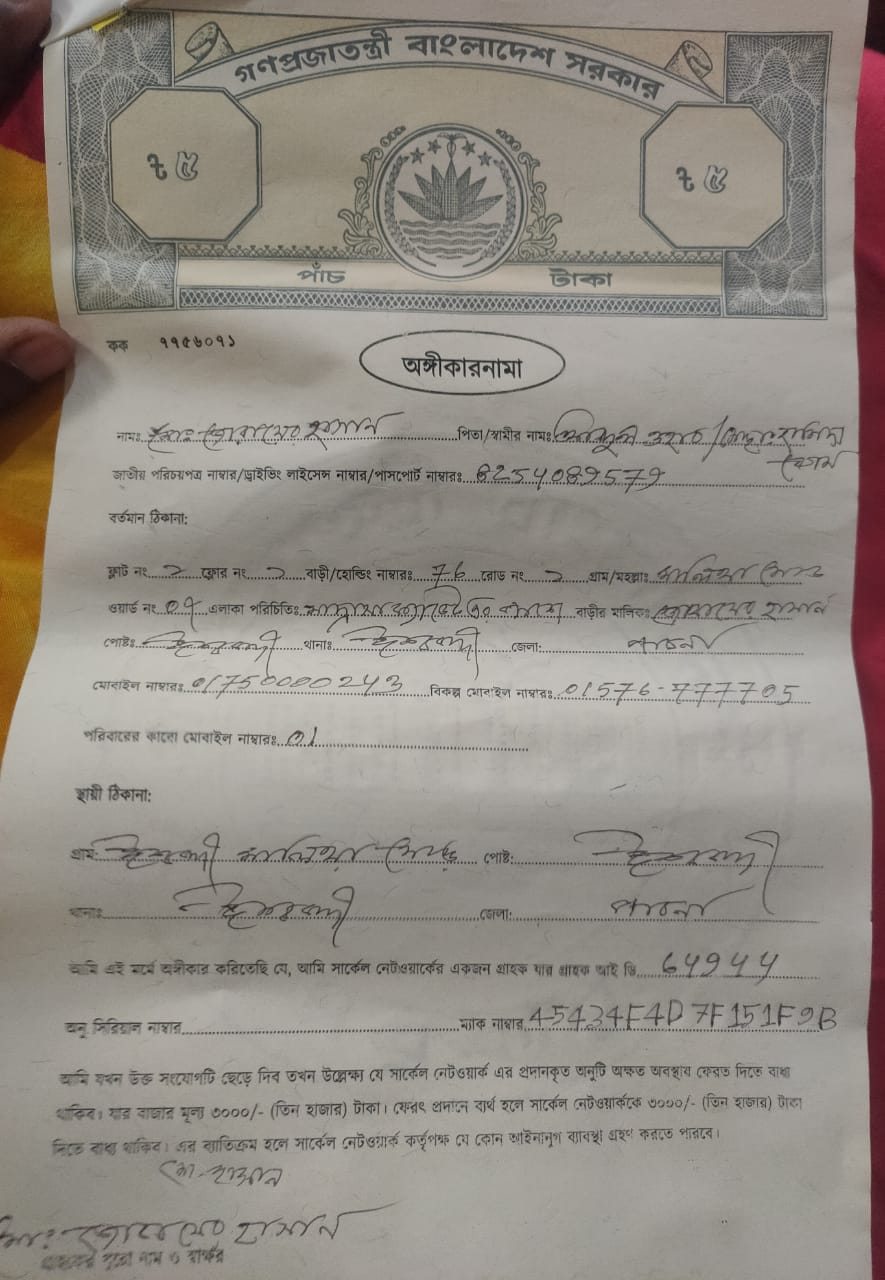 গণপ্রজাতন্ত্রী বাংলাদেশ সরকার
৳ ৫ ৳ ৫
পাঁচ টাকা
কক ৭৭৫৬০৭১
অঙ্গীকারনামা
নামঃ মোঃ হাসান পিতা/স্বামীর নামঃ
বেগম
জাতীয় পরিচয়পত্র নাম্বার/ড্রাইভিং লাইসেন্স নাম্বার/পাসপোর্ট নাম্বারঃ 8254089579
বর্তমান ঠিকানা:
ফ্লাট নং ফ্লোর নং বাড়ী/হোল্ডিং নাম্বারঃ 76 রোড নং গ্রাম/মহল্লাঃ
ওয়ার্ড নং 07 এলাকা পরিচিতিঃ বাড়ীর মালিকঃ হাসান
পোষ্টঃ ঈশ্বরদী থানাঃ ঈশ্বরদী জেলা: পাবনা
মোবাইল নাম্বারঃ 01750000243 বিকল্প মোবাইল নাম্বারঃ 01576-777705
পরিবারের কারো মোবাইল নাম্বারঃ 01
স্থায়ী ঠিকানা:
গ্রাম: ঈশ্বরদী পোষ্ট: ঈশ্বরদী
থানাঃ ঈশ্বরদী জেলা: পাবনা
আমি এই মর্মে অঙ্গীকার করিতেছি যে, আমি সার্কেল নেটওয়ার্কের একজন গ্রাহক যার গ্রাহক আই ডি 64944
অনু সিরিয়াল নাম্বার ম্যাক নাম্বার 45434F4D7F151F9B
আমি যখন উক্ত সংযোগটি ছেড়ে দিব তখন উল্লেক্ষ্য যে সার্কেল নেটওয়ার্ক এর প্রদানকৃত অনুটি অক্ষত অবস্থায় ফেরত দিতে বাধ্য
থাকিব। যার বাজার মূল্য ৩০০০/- (তিন হাজার) টাকা। ফেরৎ প্রদানে ব্যর্থ হলে সার্কেল নেটওয়ার্ককে ৩০০০/- (তিন হাজার) টাকা
দিতে বাধ্য থাকিব। এর ব্যতিক্রম হলে সার্কেল নেটওয়ার্ক কর্তৃপক্ষ যে কোন আইনানুগ ব্যবস্থা গ্রহণ করতে পারবে।
হাসান
মোঃ হাসান
গ্রাহকের পুরো নাম ও স্বাক্ষর